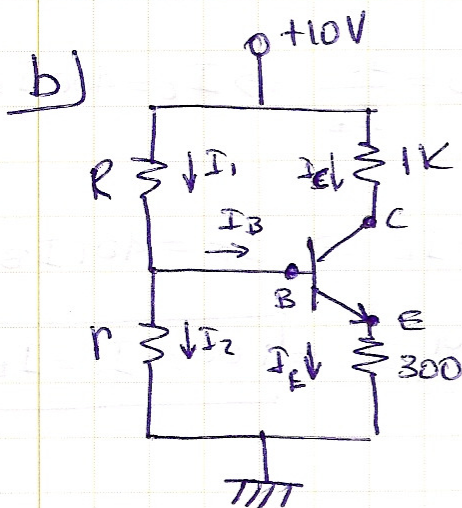 b)
+10V
R
I1
IC
1K
C
IB
B
E
r
I2
IE
300